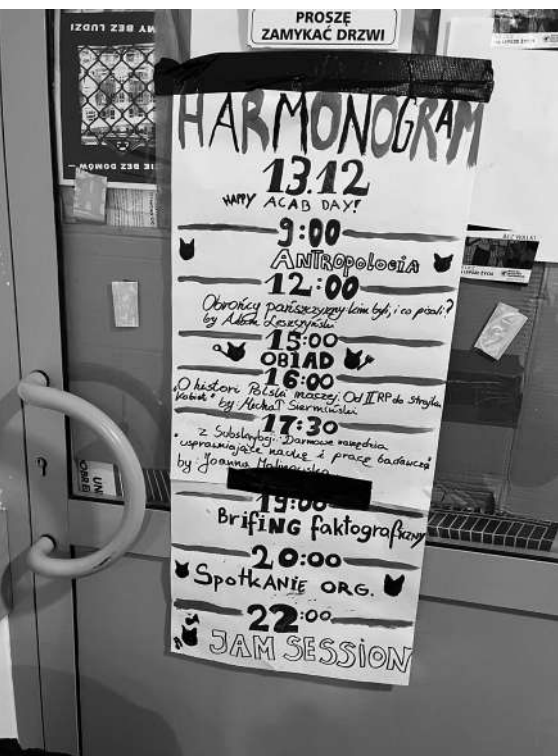 PROSZĘ
ZAMYKAĆ DRZWI
MY BEZ LUDZI
NIE BEZ DOMÓW –
HARMONOGRAM
13.12
HAPPY ACAB DAY!
9:00
ANTROPOLOGIA
12:00
Obrońcy pańszczyzny kim byli, i co pisali?
by Adam Leszczyński
15:00
OBIAD
16:00
"O histori Polski naszej. Od II RP do Strajku
Kobiet" by: Michał Siermiński
17:30
z Subskrybcji: Darmowe narzędzia
usprawniające naukę i pracę badawczą"
by: Joanna
19:00
Brifing faktograficzny
20:00
SpotkANIE ORG.
22:00
JAM SESSION